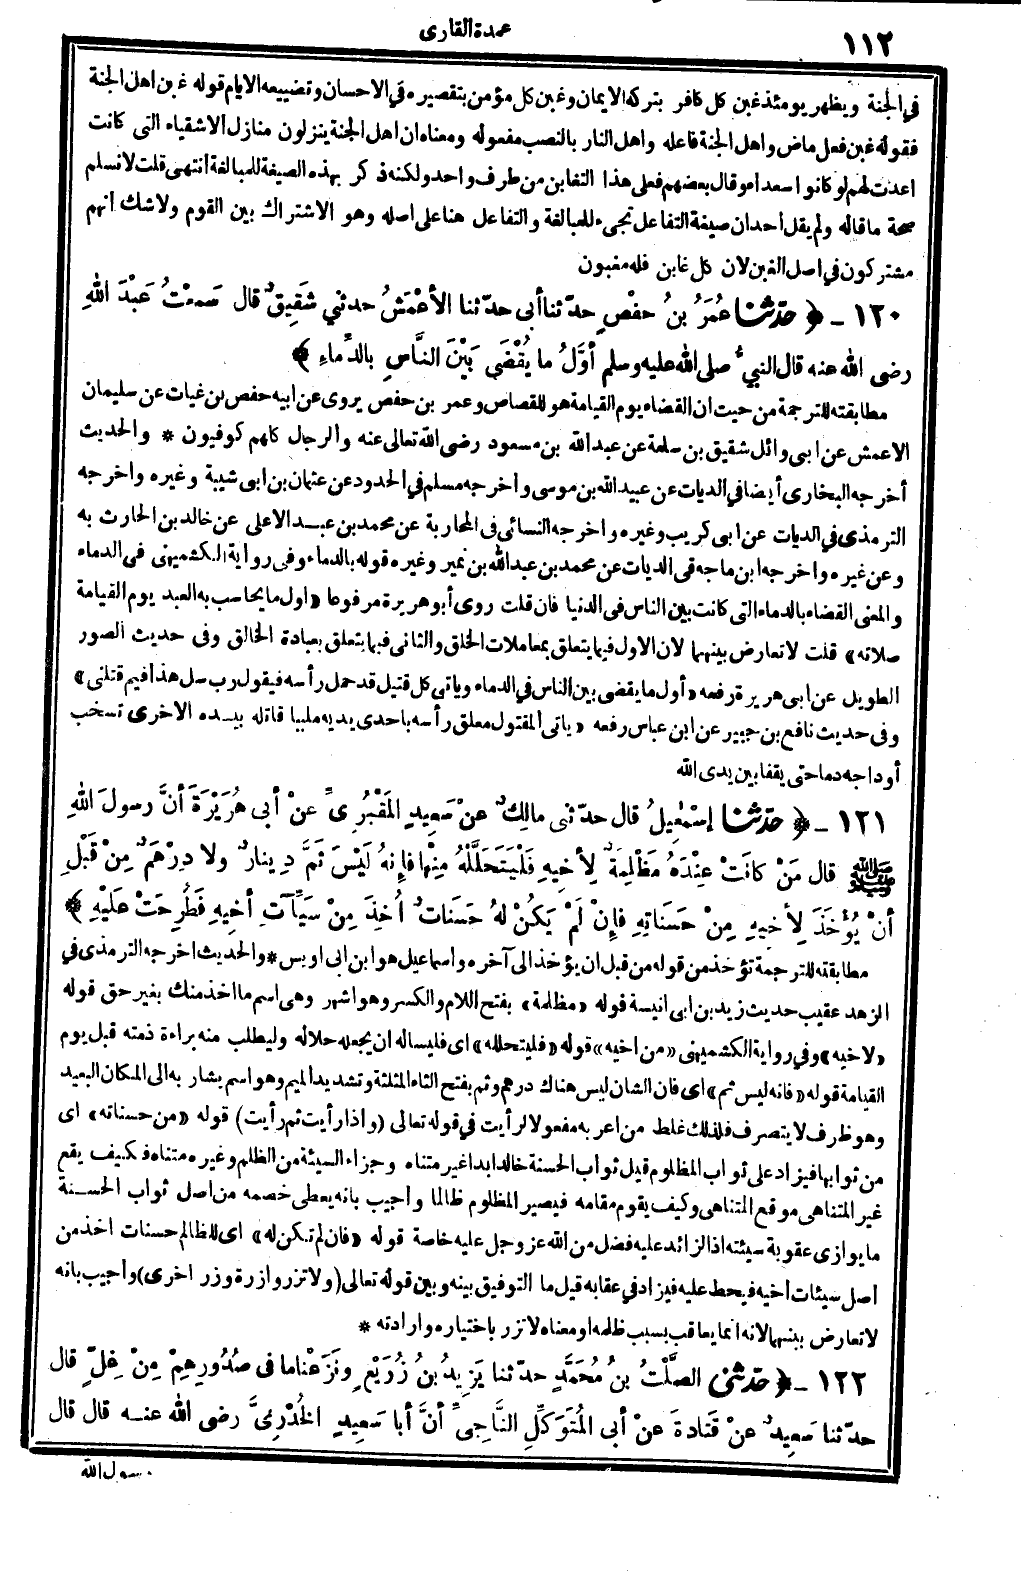 ١١٢
عمدة القارى
في الجنة ويظهر يومئذ غبن كل كافر بتركه الايمان وغبن كل مؤمن بتقصيره في الاحسان وتضييعه الايام قوله غبن اهل الجنة
فقوله غبن فعل ماض واهل الجنة فاعله واهل النار بالنصب مفعوله ومعناه ان اهل الجنة ينزلون منازل الاشقياء التى كانت
اعدت لهم لو كانوا سعداء وقال بعضهم فعلى هذا التغابن من طرف واحد ولكنه ذكر بهذه الصيغة للمبالغة انتهى قلت لا نسلم
صحة ما قاله ولم يقل أحد ان صيغة التفاعل تجىء للمبالغة والتفاعل هنا على اصله وهو الاشتراك بين القوم ولا شك انهم
مشتركون في اصل الغبن لان كل غابن فله مغبون
١٢٠ ـ ﴿ حدّثنا عُمَرُ بنُ حفْصٍ حدّثنا أبى حدّثنا الأعْمَشُ حدثني شَقِيقٌ قال سَمِعْتُ عَبْدَ اللهِ
رضى الله عنه قال النبيُّ صلى الله عليه وسلم أوَّلُ ما يُقْضَى بَيْنَ النَّاسِ بالدِّماءِ ﴾
مطابقته للترجمة من حيث ان القضاء يوم القيامة هو للقصاص وعمر بن حفص يروى عن ابيه حفص بن غياث عن سليمان
الاعمش عن ابى وائل شقيق بن سلمة عن عبد الله بن مسعود رضى الله تعالى عنه والرجال كلهم كوفيون * والحديث
أخرجه البخارى أيضا في الديات عن عبيد الله بن موسى واخرجه مسلم في الحدود عن عثمان بن ابى شيبة وغيره واخرجه
الترمذى في الديات عن ابى كريب وغيره واخرجه النسائى فى المحاربة عن محمد بن عبد الاعلى عن خالد بن الحارث به
وعن غيره واخرجه ابن ماجه فى الديات عن محمد بن عبد الله بن نمير وغيره قوله بالدماء وفى رواية الكشميهنى فى الدماء
والمعنى القضاء بالدماء التى كانت بين الناس فى الدنيا فان قلت روى أبو هريرة مرفوعا «اول ما يحاسب به العبد يوم القيامة
صلاته» قلت لا تعارض بينهما لان الاول فيما يتعلق بمعاملات الخلق والثانى فيما يتعلق بعبادة الخالق وفى حديث الصور
الطويل عن ابى هريرة رفعه «أول ما يقضى بين الناس في الدماء ويأتى كل قتيل قد حمل رأسه فيقول رب سل هذا فيم قتلنى»
وفى حديث نافع بن جبير عن ابن عباس رفعه «يأتى المقتول معلق رأسه باحدى يديه ملببا قاتله بيده الاخرى تسخب
أوداجه دما حتى يقفا بين يدى الله
١٢١ ـ ﴿ حدّثنا إسْمَعِيلُ قال حدّثنى مالِكٌ عنْ سَعِيدٍ المَقْبُرِىِّ عنْ أبى هُرَيْرَةَ أنَّ رسولَ اللهِ
ﷺ قال مَنْ كانَتْ عِنْدَهُ مَظْلِمَةٌ لِأخِيهِ فَلْيَتَحَلَّلْهُ مِنْها فإنهُ لَيْسَ ثَمَّ دِينارٌ ولا دِرْهَمٌ مِنْ قَبْلِ
أنْ يُؤْخَذَ لِأخِيهِ مِنْ حَسَناتِهِ فإنْ لَمْ يَكُنْ لهُ حَسَناتٌ أُخِذَ مِنْ سَيِّآتِ أخِيهِ فَطُرِحَتْ عَلَيْهِ ﴾
مطابقته للترجمة تؤخذ من قوله من قبل ان يؤخذ الى آخره واسماعيل هو ابن ابى اويس * والحديث اخرجه الترمذى في
الزهد عقيب حديث زيد بن ابى انيسة قوله «مظلمة» بفتح اللام والكسر وهو اشهر وهى اسم ما اخذ منك بغير حق قوله
«لاخيه» وفي رواية الكشميهنى «من اخيه» قوله «فليتحلله» اى فليسأله ان يجعله حلاله وليطلب منه براءة ذمته قبل يوم
القيامة قوله «فانه ليس ثم» اى فان الشان ليس هناك درهم وثم بفتح الثاء المثلثة وتشديد الميم وهو اسم يشار به الى المكان البعيد
وهو ظرف لا يتصرف فلذلك غلط من اعربه مفعولا لرأيت في قوله تعالى (واذا رأيت ثم رأيت) قوله «من حسناته» اى
من ثوابها فيزاد على ثواب المظلوم قيل ثواب الحسنة خالد ابدا غير متناه وجزاء السيئة من الظلم وغيره متناه فكيف يقع
غير المتناهى موقع المتناهى وكيف يقوم مقامه فيصير المظلوم ظالما واجيب بانه يعطى خصمه من اصل ثواب الحسنة
ما يوازى عقوبة سيئته اذ الزائد عليه فضل من الله عز وجل عليه خاصة قوله «فان لم تكن له» اى للظالم حسنات اخذ من
اصل سيئات أخيه فيحط عليه فيزاد في عقابه قيل ما التوفيق بينه وبين قوله تعالى (ولا تزر وازرة وزر اخرى) واجيب بانه
لا تعارض بينهما لانه انما يعاقب بسبب ظلمه او معناه لا تزر باختياره وارادته *
١٢٢ ـ ﴿ حدّثنى الصَّلْتُ بنُ مُحَمَّدٍ حدّثنا يَزِيدُ بنُ زُرَيْعٍ ونَزَعْنا ما فى صُدُورِهِمْ مِنْ غِلٍّ قال
حدّثنا سَعِيدٌ عنْ قَتادةَ عنْ أبى المُتَوَكِّلِ النَّاجِى أنَّ أبا سَعِيدٍ الخُدْرِىَّ رضى الله عنه قال قال
رسول الله